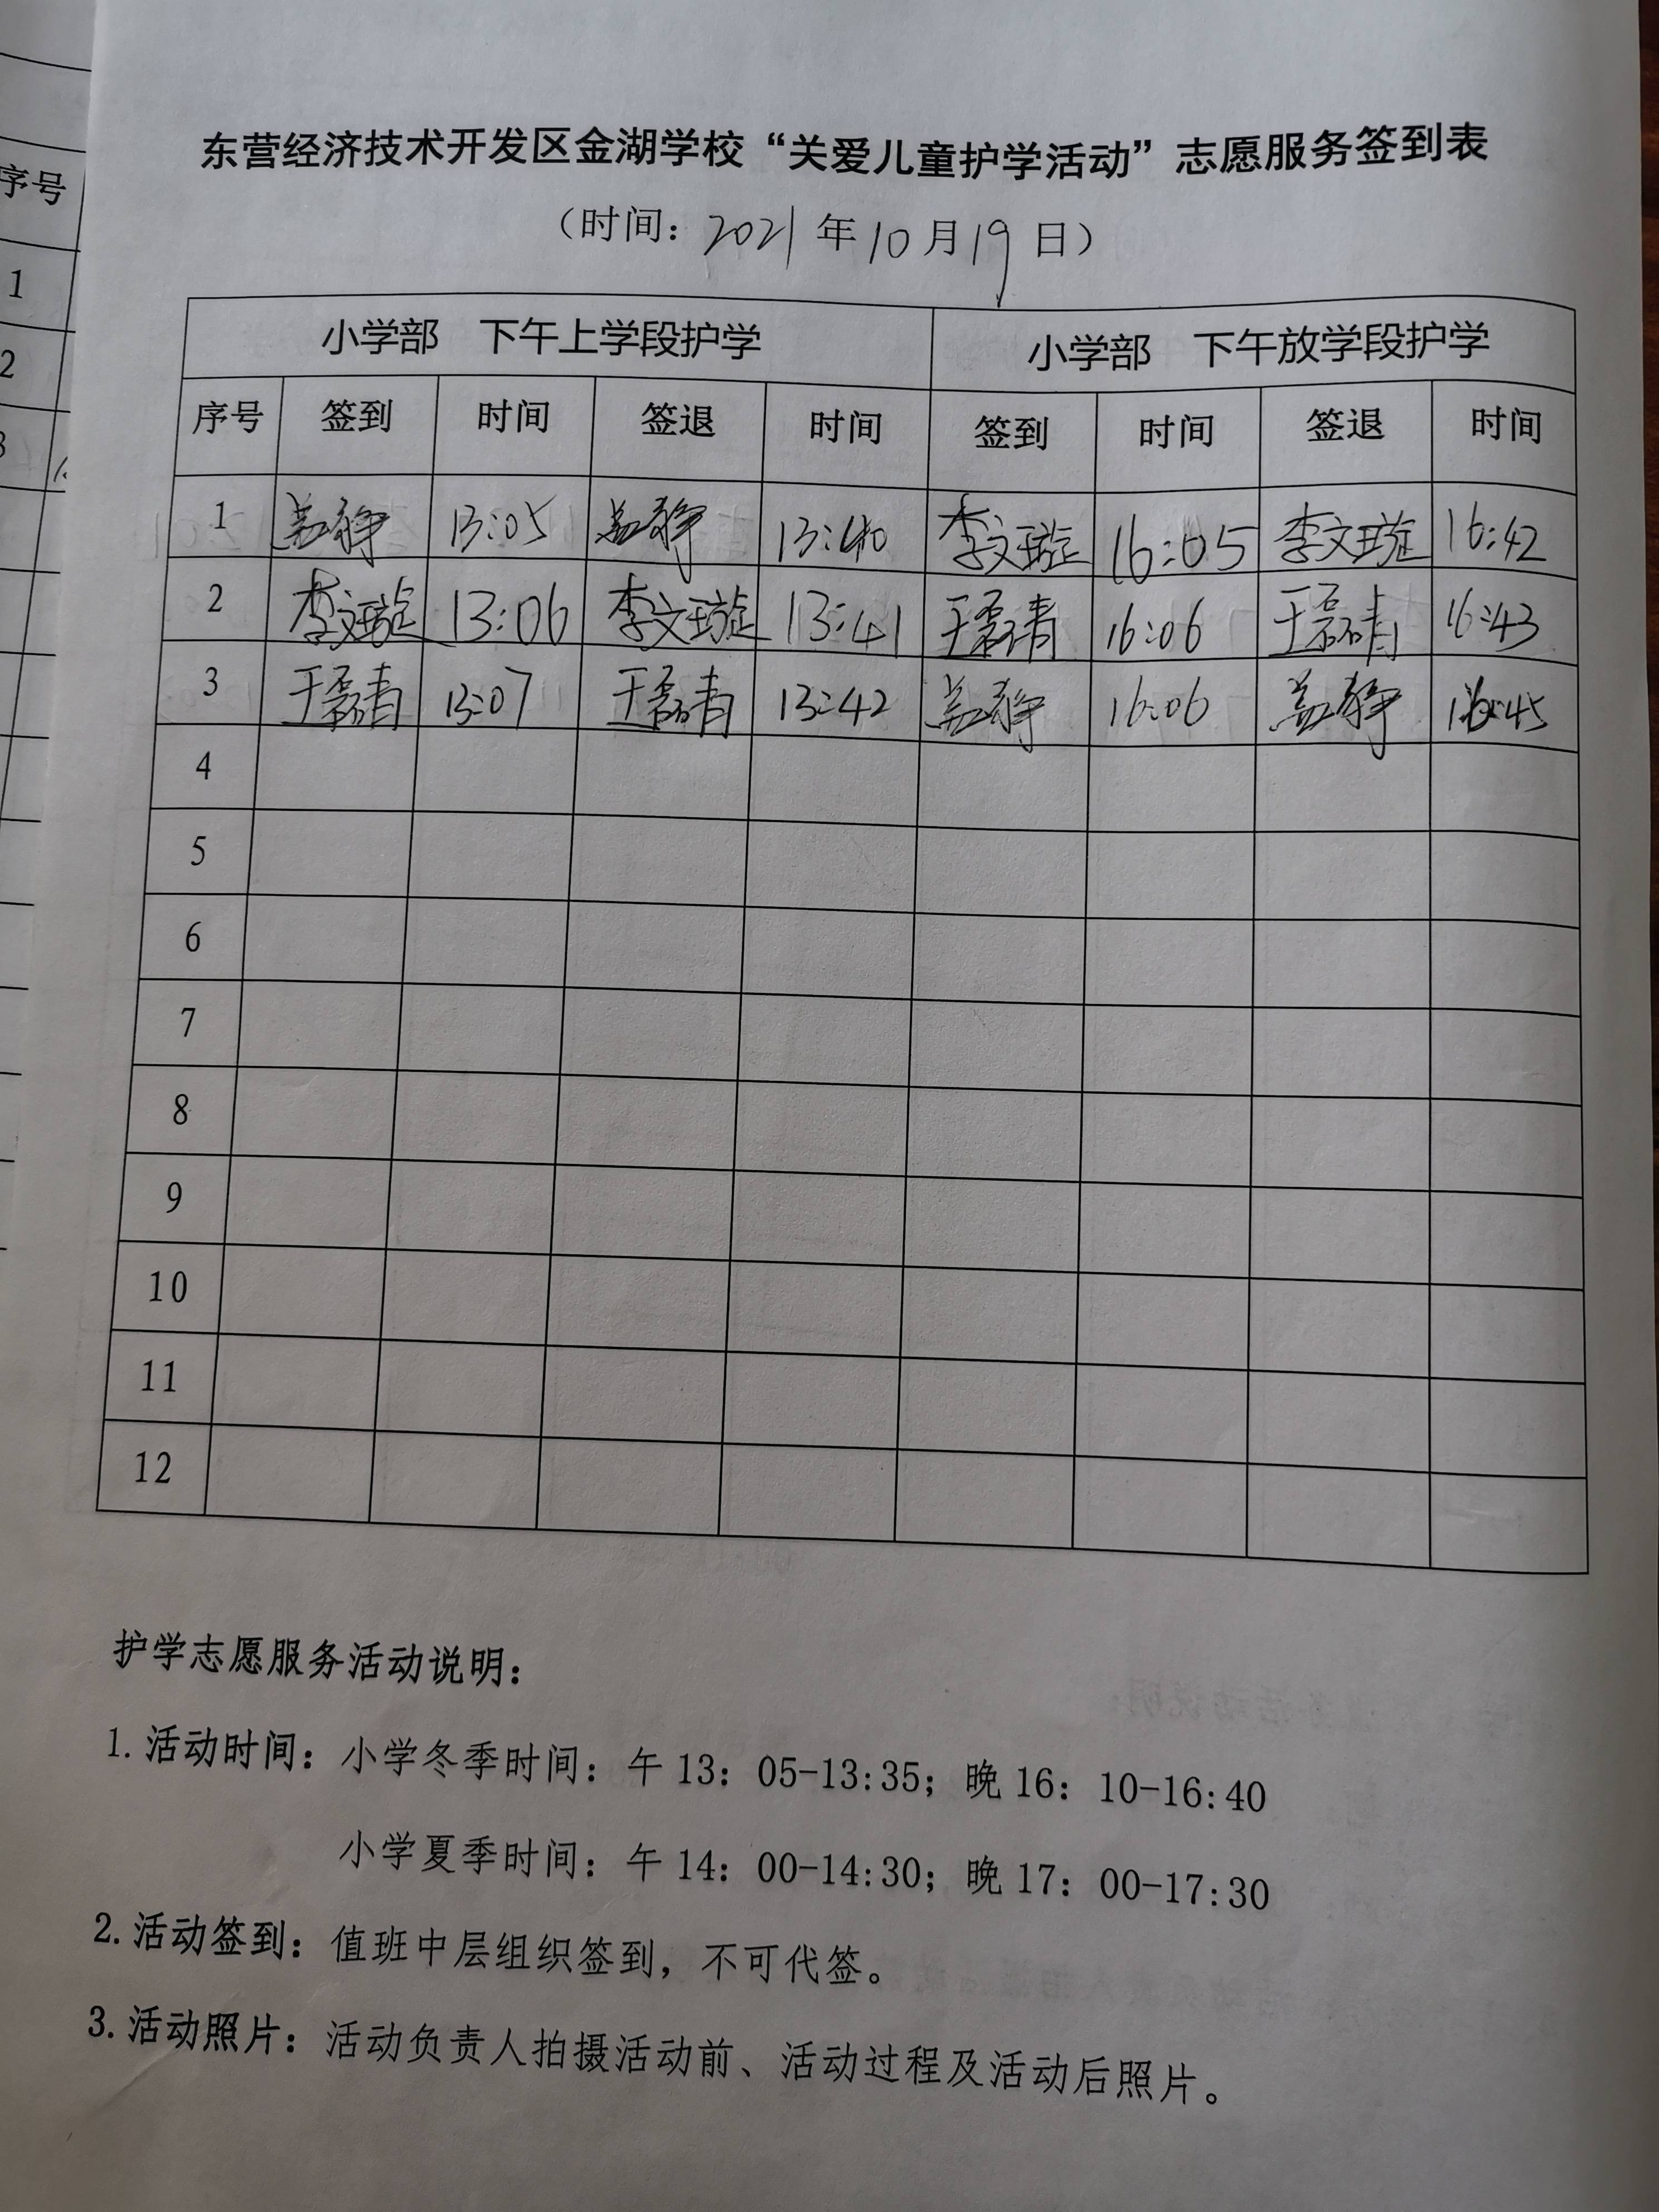 东营经济技术开发区金湖学校“关爱儿童护学活动”志愿服务签到表
（时间：2021年10月19日）
小学部 下午上学段护学 小学部 下午放学段护学
序号 签到 时间 签退 时间 签到 时间 签退 时间
1 盖静 13:05 盖静 13:40 李文璇 16:05 李文璇 16:42
2 李文璇 13:06 李文璇 13:41 于磊青 16:06 于磊青 16:43
3 于磊青 13:07 于磊青 13:42 盖静 16:06 盖静 16:45
4
5
6
7
8
9
10
11
12
护学志愿服务活动说明：
1.活动时间：小学冬季时间：午13：05-13:35；晚16：10-16:40
小学夏季时间：午14：00-14:30；晚17：00-17:30
2.活动签到：值班中层组织签到，不可代签。
3.活动照片：活动负责人拍摄活动前、活动过程及活动后照片。
序号
1
2
3